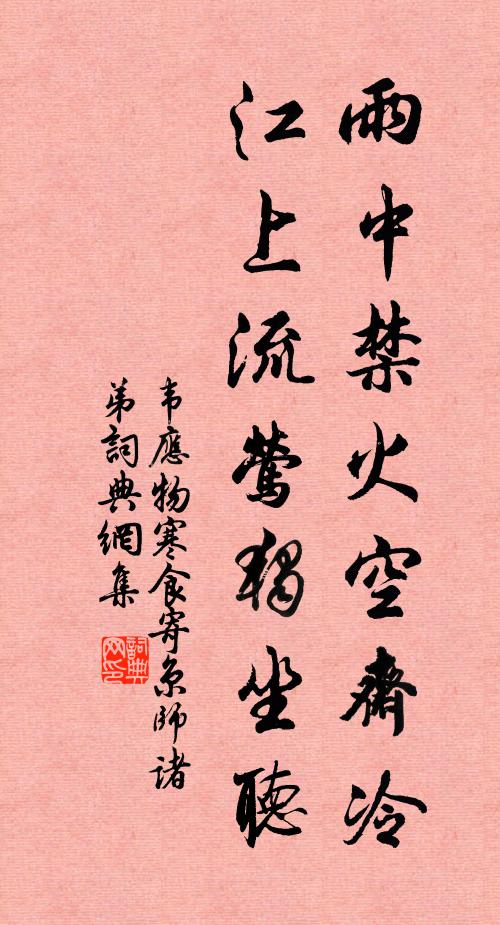 雨中禁火空齋冷
江上流鶯獨坐聽
韦應物寒食寄京師諸
弟詞典網集
詞典
网印